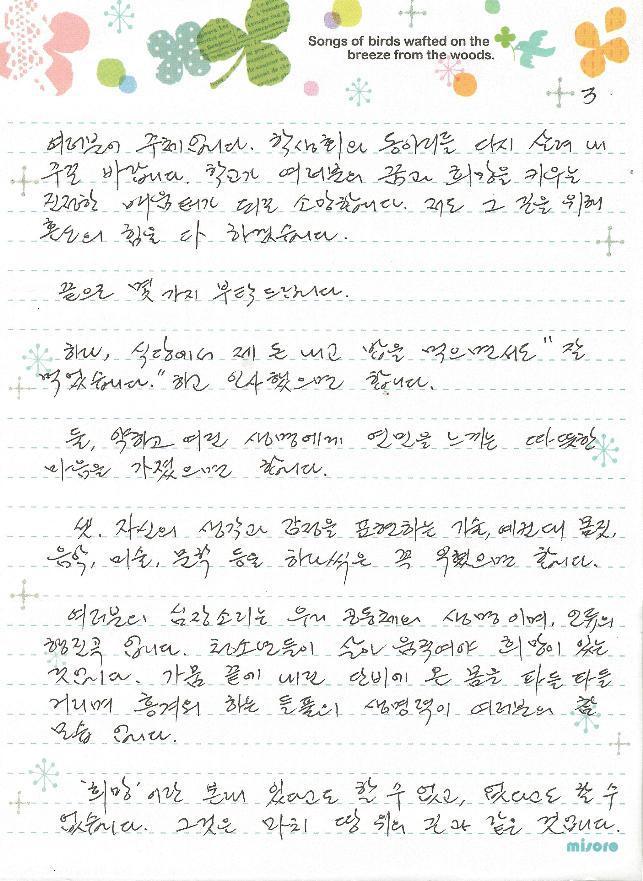 Songs of birds wafted on the
breeze from the woods.
3
여러분이 주체입니다. 학생회와 동아리를 다시 살려 내
주길 바랍니다. 학교가 여러분의 꿈과 희망을 키우는
진정한 배움터가 되길 소망합니다. 저도 그 길을 위해
혼신의 힘을 다 하겠습니다.
끝으로 몇 가지 부탁드립니다.
하나, 식당에서 제 돈 내고 밥을 먹으면서도 "잘
먹었습니다."하고 인사했으면 합니다.
둘, 약하고 여린 생명에게 연민을 느끼는 따뜻한
마음을 가졌으면 합니다.
셋. 자신의 생각과 감정을 표현하는 기술, 예컨대 몸짓,
음악, 미술, 문학 등을 하나씩은 꼭 익혔으면 합니다.
여러분의 심장소리는 우리 공동체의 생명이며, 인류의
행진곡 입니다. 청소년들이 살아 움직여야 희망이 있는
것입니다. 가뭄 끝에 내린 단비에 온 몸을 파들 파들
거리며 흥겨워 하는 들풀의 생명력이 여러분의 참
모습 입니다.
'희망'이란 본래 있다고도 할 수 없고, 없다고도 할 수
없습니다. 그것은 마치 땅 위의 길과 같은 것입니다.
misoro